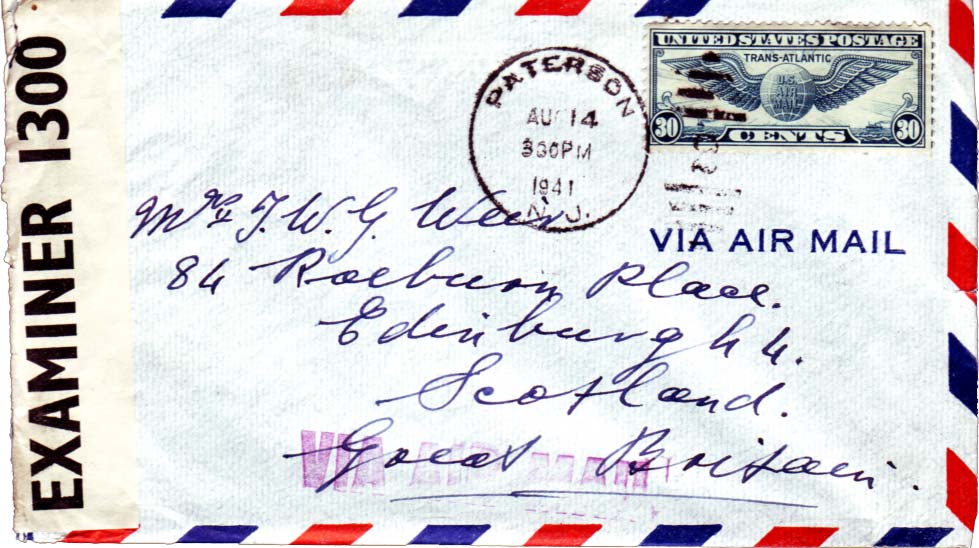 EXAMINER 1300
UNITED STATES POSTAGE
TRANS-ATLANTIC
U.S.
AIR
MAIL
30 CENTS 30
PATERSON
AUG 14
330PM
1941
N.J.
VIA AIR MAIL
Mrs J. W. G. Weir
84 Raeburn Place.
Edinburgh 4.
Scotland.
Great Britain.
VIA AIR MAIL